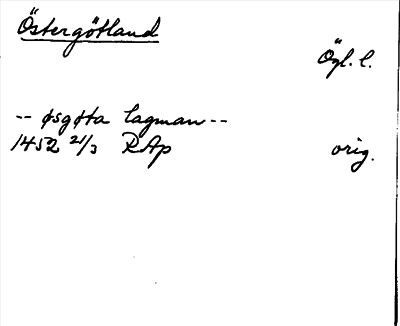 Östergötland
Ögl. l.
-- øsgøta lagman --
1452 21/3 RAp orig.